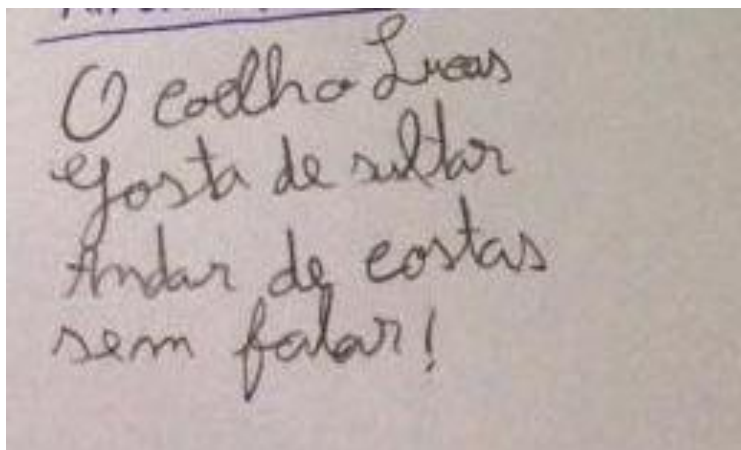 O coelho Lucas
Gosta de saltar
Andar de costas
sem falar!